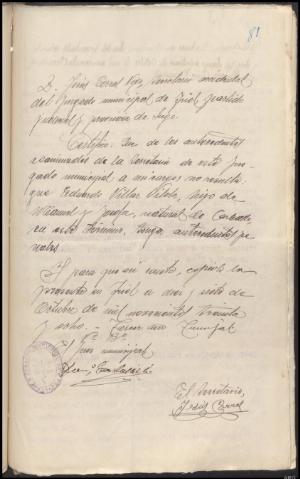 81
D. Jesús Corral Rey, Secretario accidental
del Juzgado municipal de Friol, partido
judicial y provincia de Lugo.
Certifico: Que de los antecedentes
examinados de la Secretaría de este Juz-
gado municipal a mi cargo, no resulta
que Eduardo Villar Vilela, hijo de
Manuel y Josefa, natural de
en este término, tenga antecedentes pe-
nales.
Y para que así conste, expido la
presente en Friol a diez y siete de
Octubre de mil novecientos treinta
y ocho. - Tercer año Triunfal
Vº Bº
El Juez municipal
El Secretario,
Jesús Corral